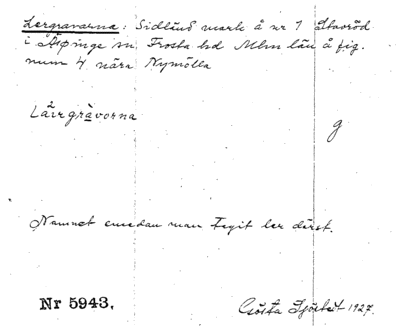 Lergravarna: Sidländ mark å nr 1 Starröd
i Äspinge sn Frosta hd Mlm län å fig.
num 4 nära Nymölla
Läirgrävorna
g
Namnet emedan man tagit ler därst.
Nr 5943.
Gösta Sjöstedt 1927.